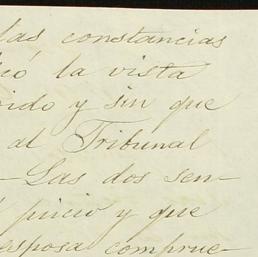 las constancias
ció la vista
bido y sin que
al Tribunal
—Las dos sen-
juicio y que
esposa comprue-